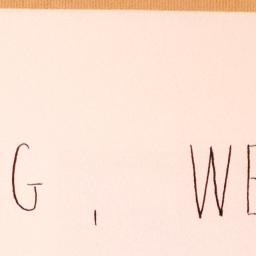 G, WE